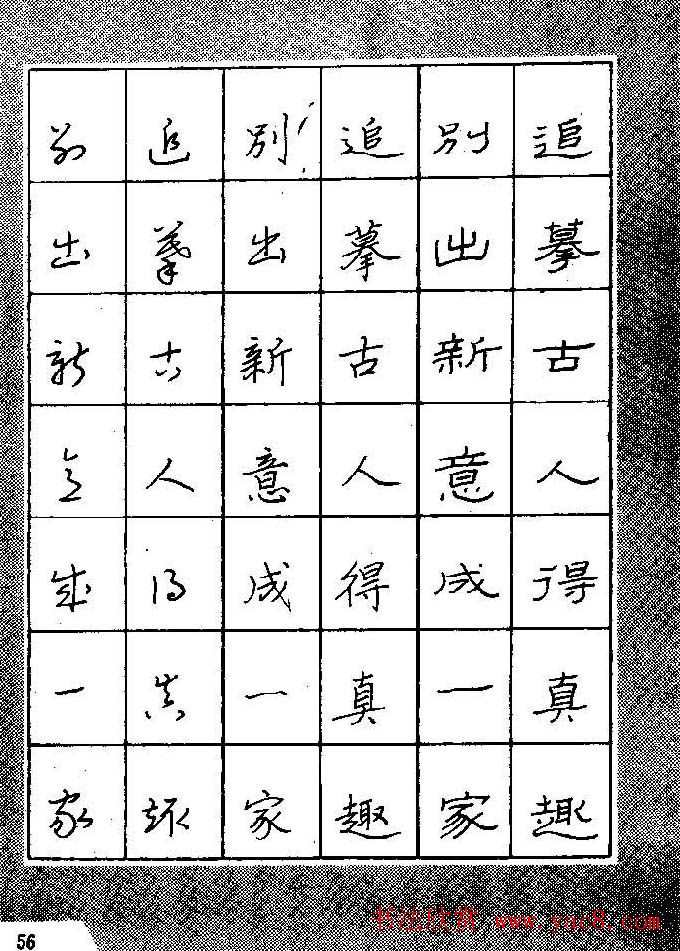 追摹古人得真趣
别出新意成一家
追摹古人得真趣
别出新意成一家
追摹古人得真趣
别出新意成一家
56
书法欣赏 www.yac8.com